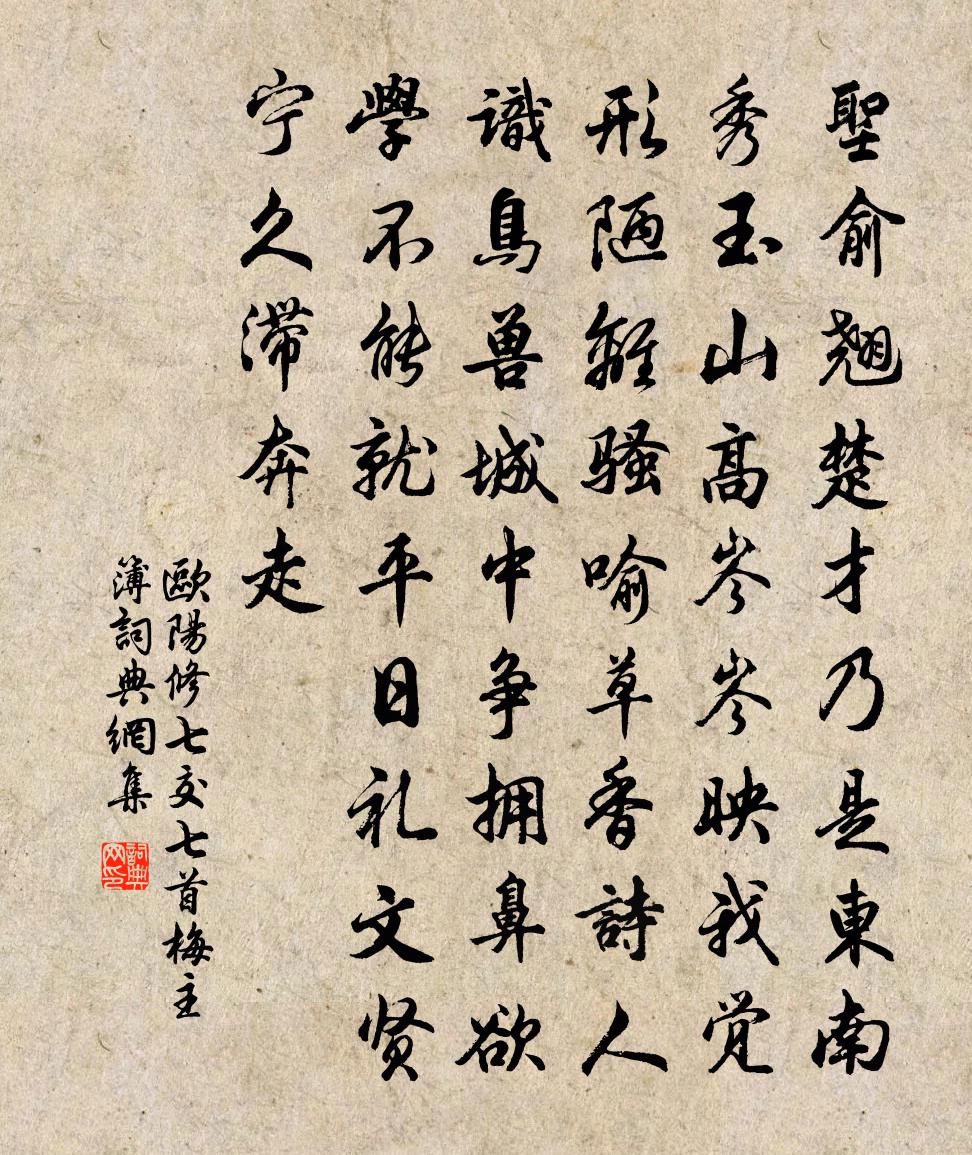 聖俞翹楚才乃是東南
秀玉山高岑岑映我觉
形陋離騷喻草香詩人
識鳥兽城中争拥鼻欲
學不能就平日礼文贤
宁久滯奔走
歐陽修七交七首梅主
簿詞典網集
詞典网印